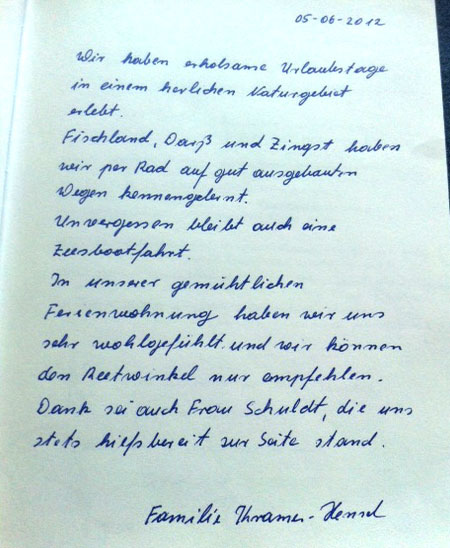 05-06-2012
Wir haben erholsame Urlaubstage
in einem herlichen Naturgebiet
erlebt.
Fischland, Darß und Zingst haben
wir per Rad auf gut ausgebauten
Wegen kennengelernt.
Unvergessen bleibt auch eine
Zeesbootfahrt.
In unserer gemühtlichen
Ferienwohnung haben wir uns
sehr wohlgefühlt und wir können
den Reetwinkel nur empfehlen.
Dank sei auch Frau Schuldt, die uns
stets hilfsbereit zur Seite stand.
Familie